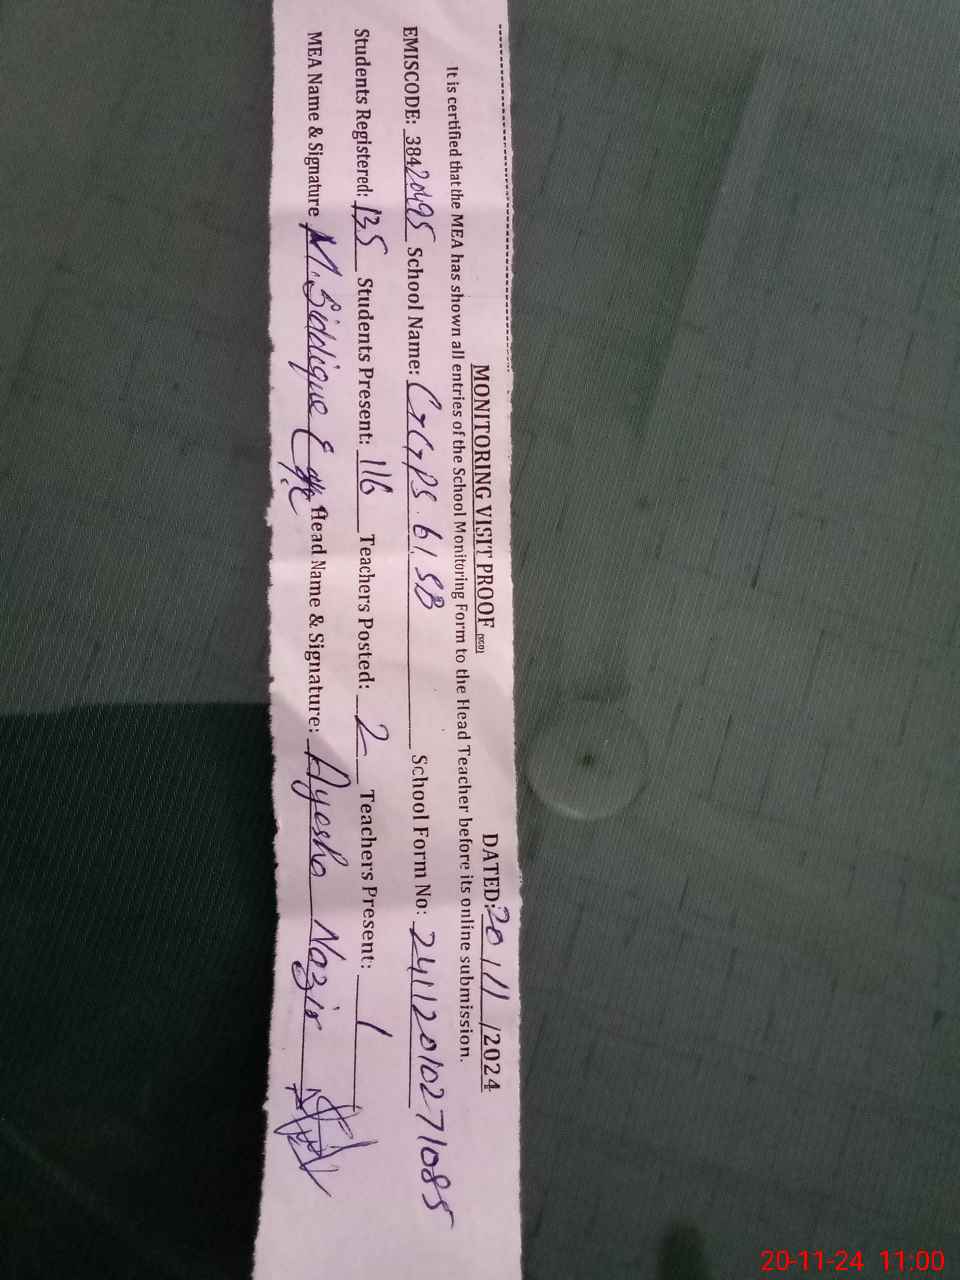 MONITORING VISIT PROOF (SED) DATED: 20 / 11 /2024
It is certified that the MEA has shown all entries of the School Monitoring Form to the Head Teacher before its online submission.
EMISCODE: 38420495 School Name: GGPS. 61. SB School Form No: 24112010271085
Students Registered: 135 Students Present: 116 Teachers Posted: 2 Teachers Present: 1
MEA Name & Signature M. Siddique Head Name & Signature: Ayesha Nazir
20-11-24 11:00